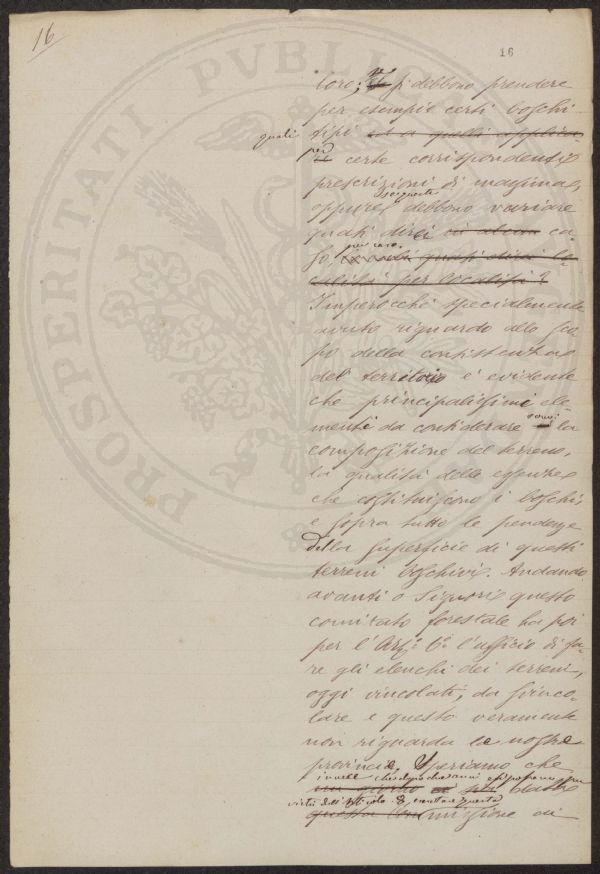 16
16
PROSPERITATI PUBLICAE
loro; si debbono prendere
per esempio certi boschi
quali tipi ed a quelli applica
per certe corrispondenti
prescrizioni di massima,
oppure debbono variare
quasi direi in alcun ca-
per caso
so,
Imperocchè specialmente
avuto riguardo allo sco-
po della consistenza
del territorio è evidente
che principalissimi ele-
menti da considerare sono la
composizione del terreno,
la qualità delle essenze
che costituiscono i boschi,
e sopra tutto le pendenze
della superficie di questi
terreni boschivi. Andando
avanti o Signori questo
comitato forestale ha poi
per l'Art. 6° l'ufficio di fa-
re gli elenchi dei terreni,
oggi vincolati, da svinco-
lare e questo veramente
non riguarda le nostre
provincie. Speriamo che
un giorno
virtù dell'Articolo 8,
questa Commissione di